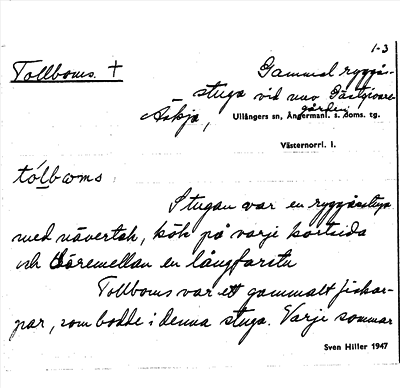 1-3
Tollboms. † Gammal ryggås-
stuga vid nuv Gästgivare-
gården
Äskja, Ullångers sn, Ångermanl. s. doms. tg.
Västernorrl. l.
tólbωms
Stugan var en ryggåsstuga
med nävertak, kök på varje kortsida
och däremellan en långfarstu
Tollboms var ett gammalt fiskar-
par, som bodde i denna stuga. Varje sommar
Sven Hiller 1947